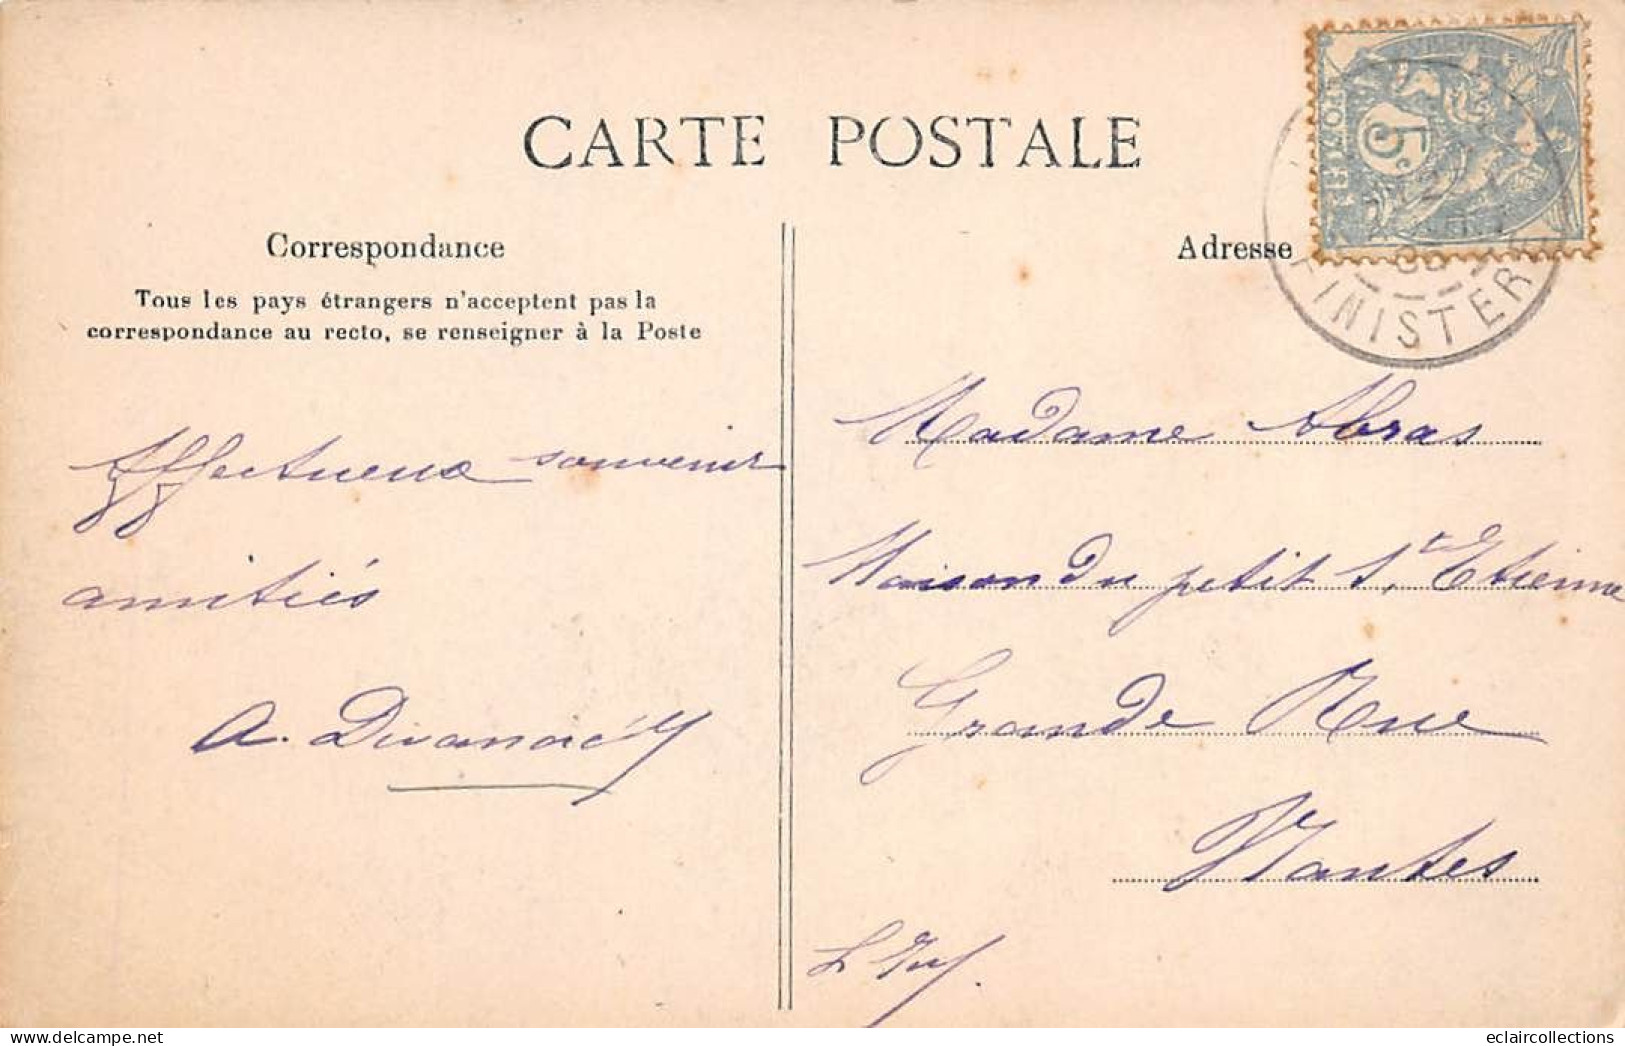 CARTE POSTALE
Correspondance
Tous les pays étrangers n'acceptent pas la
correspondance au recto, se renseigner à la Poste
Affectueux souvenir
amitiés
Adresse
5c
FINISTERE
Madame Abras
Maison du petit St Etienne
Grande Rue
Nantes
eclaircollections